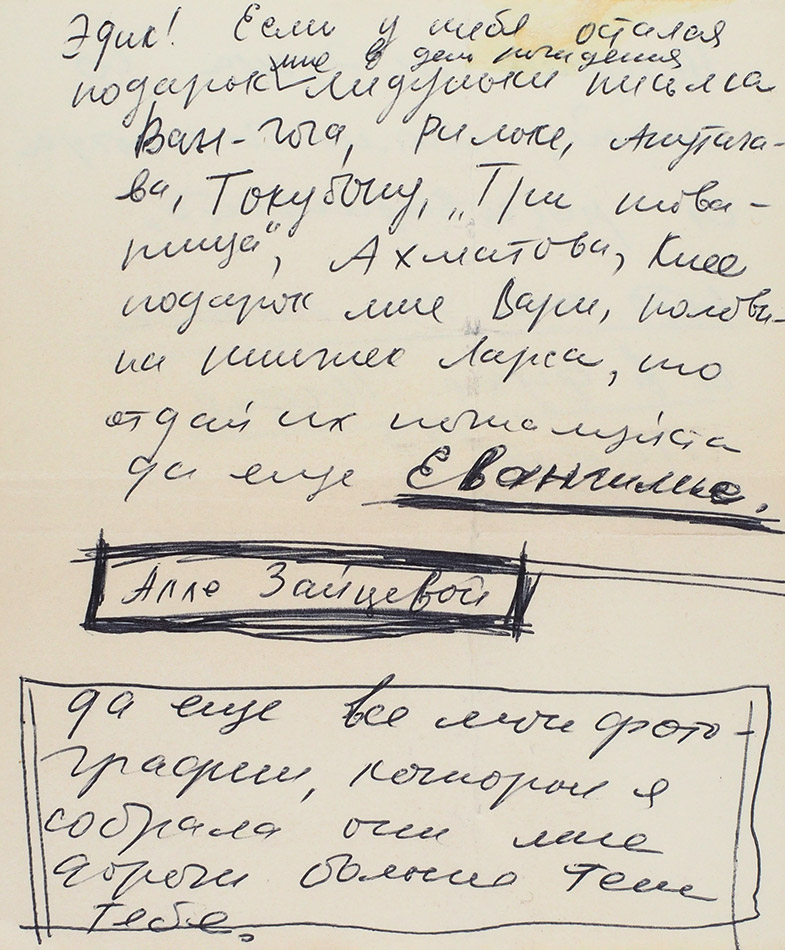 Эдик! Если у тебя остался
мне в день рождения
подарок Лидульки письма
Ван-Гога, Рильке, Акутага-
ва, Токубоку, „Три това-
рища", Ахматова, Киев
подарок мне Вари, полови-
на книжек Ларса, то
отдай их пожалуйста
да еще Евангилие.
Алле Зайцевой
да еще все мои фото-
графии, которые я
собрала они мне
дороги больше чем
тебе.